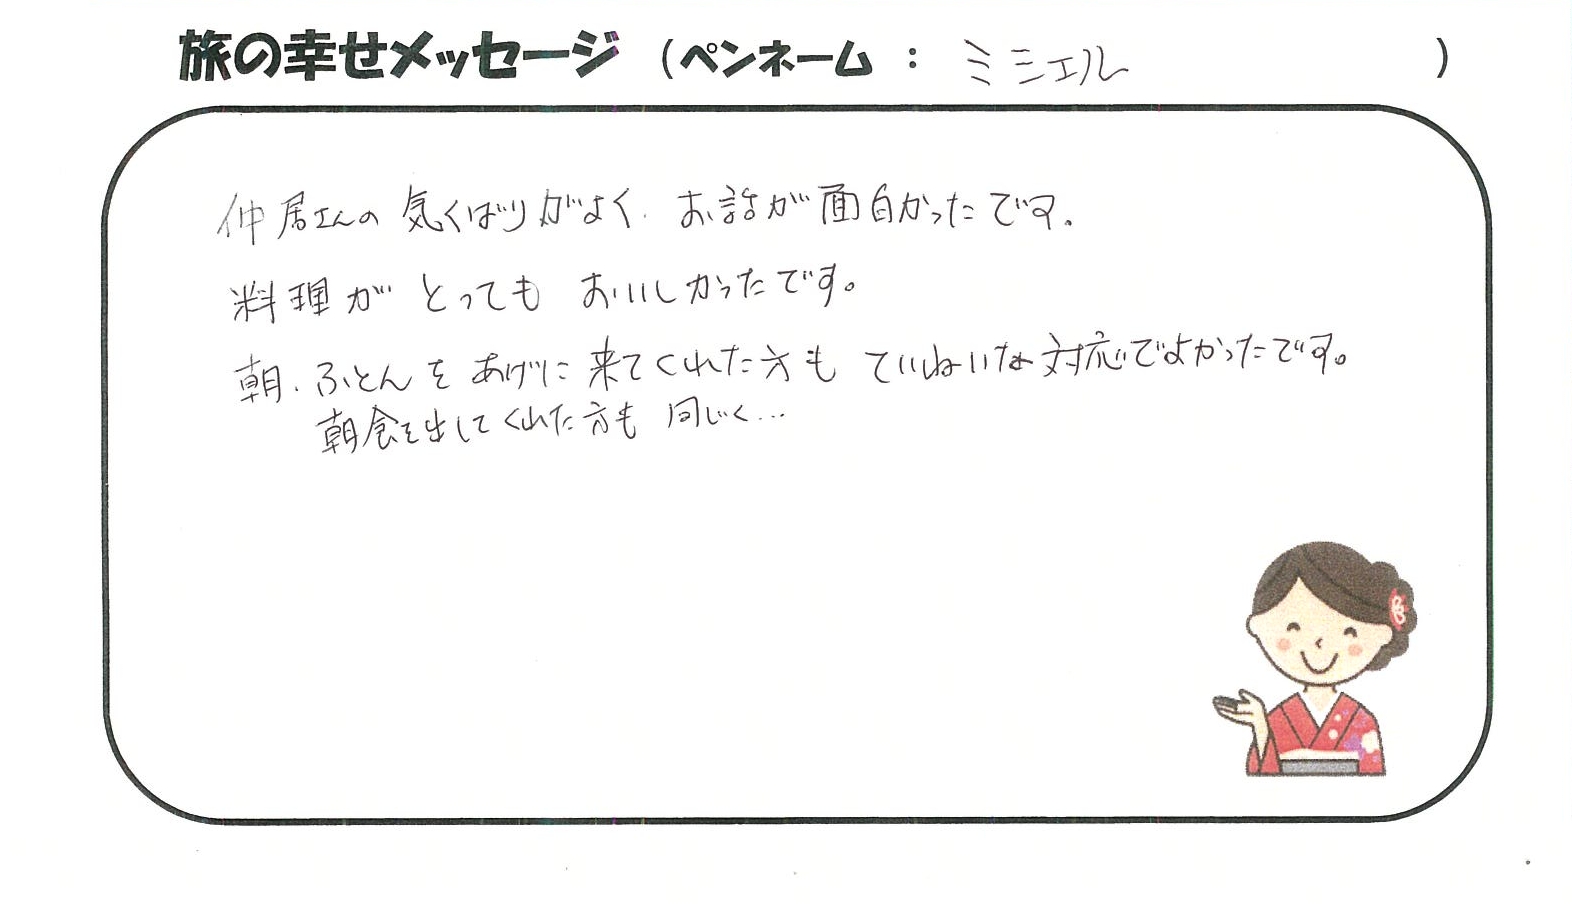 旅の幸せメッセージ（ペンネーム：ミシェル）
仲居さんの気くばりがよく、お話が面白かったです。
料理がとってもおいしかったです。
朝、ふとんをあげに来てくれた方もていねいな対応でよかったです。
朝食を出してくれた方も同じく…